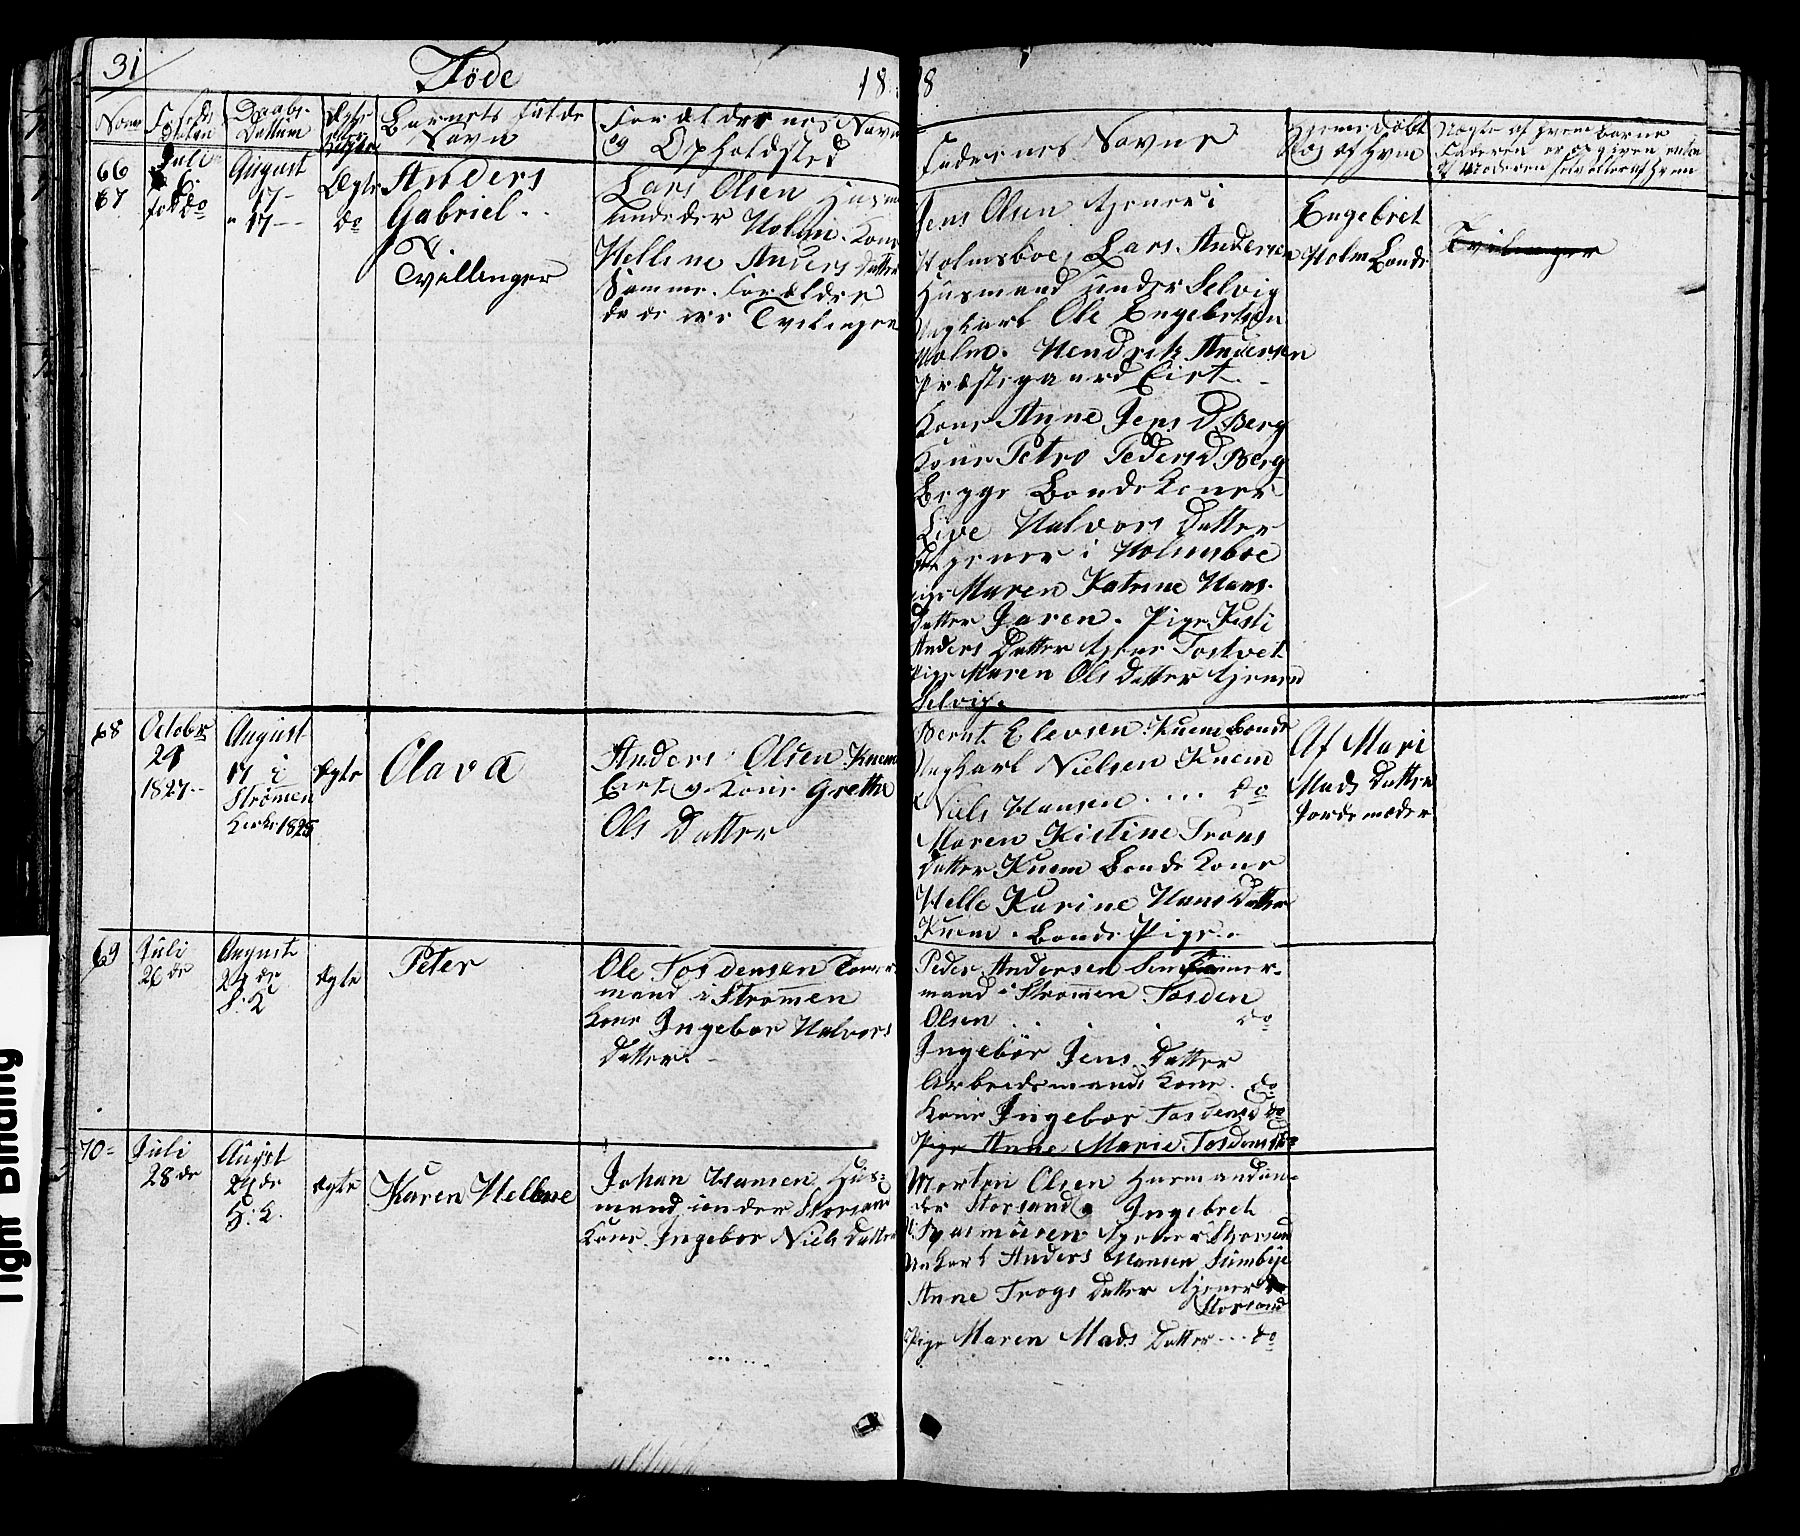 31
Føde
18 8
Daabs-
Fødsels Dattum Ægte Barnets fulde Forældrenes Navn
Navn og Opholdsted
Fadernes Navne
Hjemedøbt
og af hvem
66 Juli August Ægte Anders
67 17-
do 17-- do Gabriel..
Tvillinger
Lars Olsen Husm
Holm. Kone
Hellene Anders Datter
Samme Forældre
da de ere Tvilinger
Jens Olsen tjener i
Holmsboe, Lars Andersen
Husmand under Selvig
Ungkarl Ole Engebretsen
Holm. Hendrik Andersen
Præstegaard Eiet.
Kone Anne Jens D Berg
Kone Petro Peders D Berg
Begge Bonde Koner
Live Halvors Datter
tjener i Holmsboe
Pige Maren Katrine Hans
Datter Jaren. Pige Kisti
Anders Datter tjener Tostvet
Pige Maren Ols Datter tjener
Selvig.
Engebret
Holm Bonde
Tvilinger
68 October
24
1827--
August
17 i
Strømen
Kirke 1828
Ægte
Olava
Anders Olsen Knem
Eiet og Kone Grethe
Ols Datter
Bernt Elevsen Knem Bonde
Ungkarl Nielsen Knem
Niels Hansen .... do
Maren Kistine Trons
Datter Knem Bonde Kone
Helle Karine Hans Datter
Knem. Bonde Pige..
Af Mari
Mads Datter
Jordemoder
69 Juli
26 de
August
24 de
S. K
Ægte
Peter
Ole Tosdensen Tømer
mand i Strømen
Kone Ingebor Halvors
Datter.
Peder Andersen Tømer-
mand i Strømen Tosden
Olsen . . . do
Ingebor Jens Datter
Arbeidsmands Kone. do
Kone Ingebor Tosdens D do
Pige Anne Marie Tosdens
70= Juli
28 de
August
24 de
H. K.
Ægte
Karen Hellene
Johan Hansen Hus-
mand under Storsand
Kone Ingebor Niels Datter
Morten Olsen Husmand un-
der Storsand Ingebret
Rasmusen tjener i Storsand
Unkarl Anders Hansen Sumbye
Anne Trogs Datter tjener
Storsand
Pige Maren Mads Datter ... do
Tight Binding